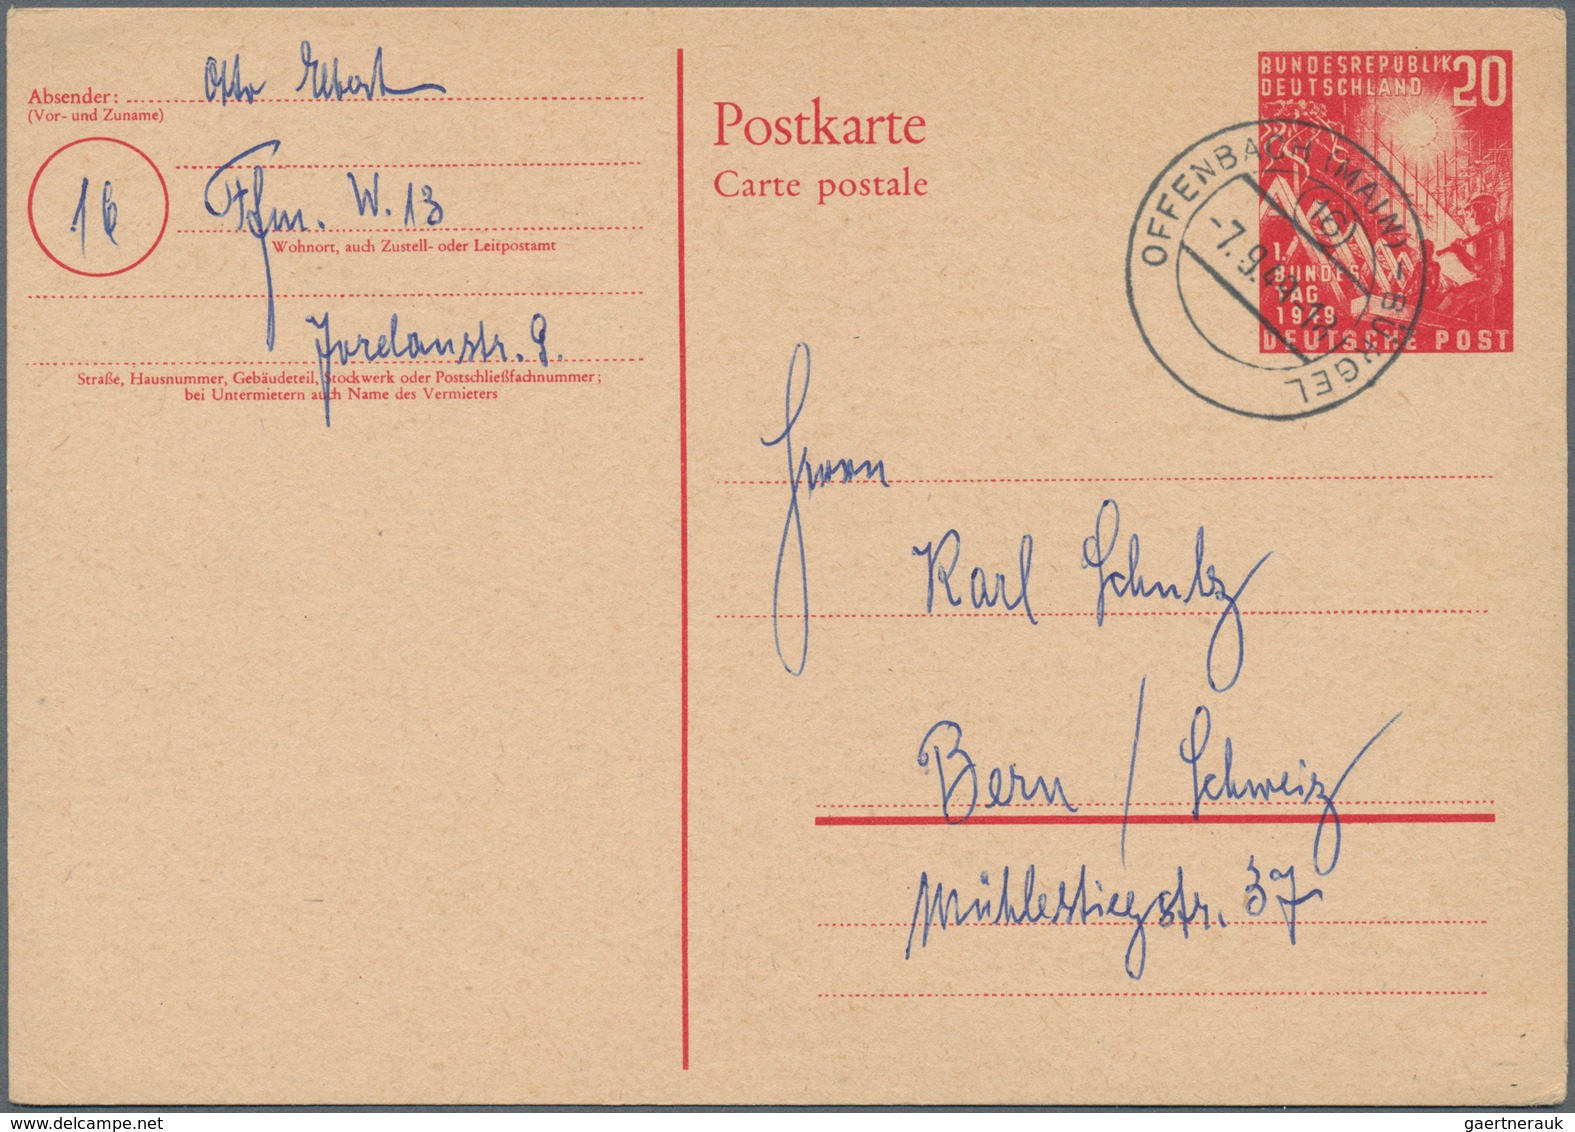 Absender:
(Vor- und Zuname)
Otto Elbert
16
Ffm. W. 13
Wohnort, auch Zustell- oder Leitpostamt
Jordanstr. 9.
Straße, Hausnummer, Gebäudeteil, Stockwerk oder Postschließfachnummer;
bei Untermietern auch Name des Vermieters
Postkarte
Carte postale
BUNDESREPUBLIK 20
DEUTSCHLAND
1.
BUNDES
TAG
1949
DEUTSCHE POST
OFFENBACH (MAIN) - BÜRGEL
16
-7.9.49-18
Herrn
Karl Schulz
Bern / Schweiz
Mühlestiegstr. 37
gaertnerauk